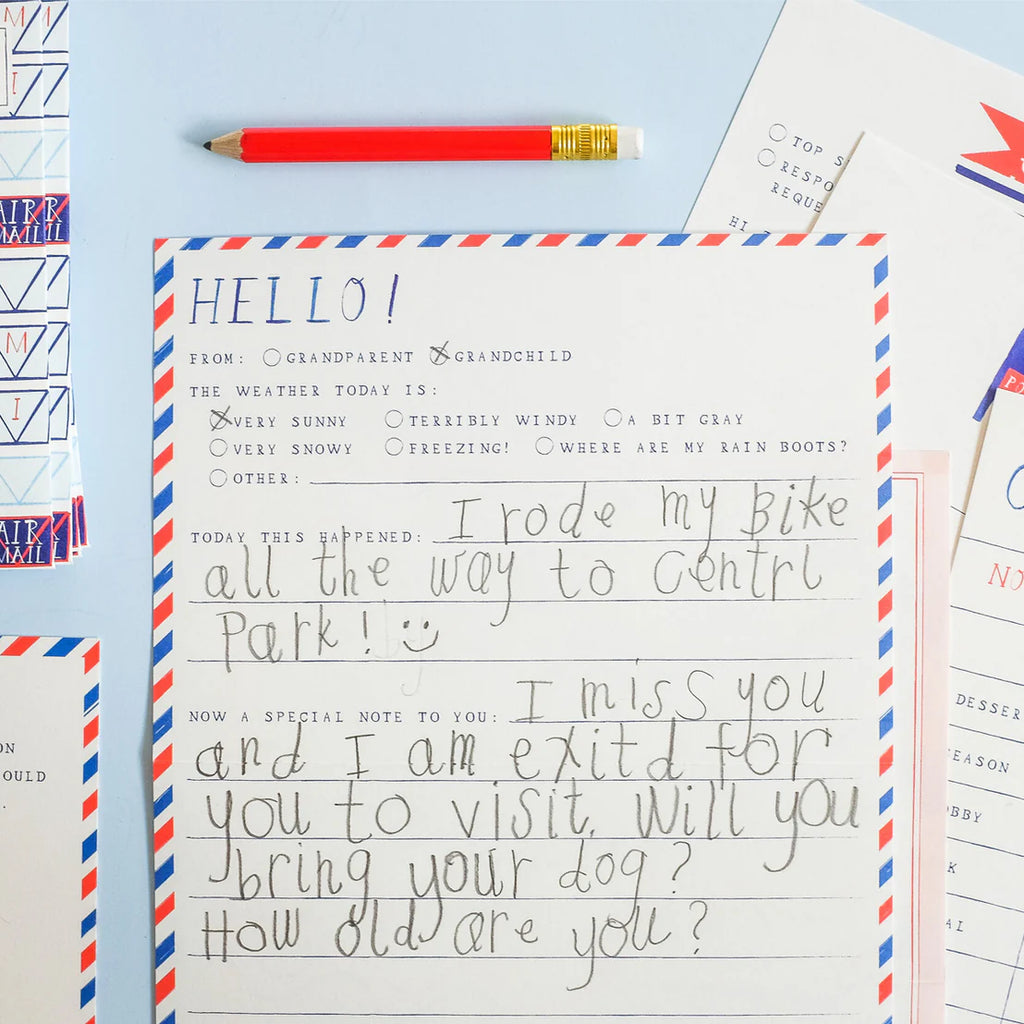 M
!
AIR R
MAIL IL
M
I
AIR
MAIL
TOP
RESPO
REQUE
HI
HELLO!
FROM: GRANDPARENT GRANDCHILD
THE WEATHER TODAY IS:
VERY SUNNY TERRIBLY WINDY A BIT GRAY
VERY SNOWY FREEZING! WHERE ARE MY RAIN BOOTS?
OTHER:
TODAY THIS HAPPENED: I rode my Bike
all the way to Centrl
Park! :)
NOW A SPECIAL NOTE TO YOU: I miss you
and I am exitd for
you to visit. Will you
bring your dog?
How old are you?
ON
OULD
NO
DESSER
EASON
BBY
K
AL